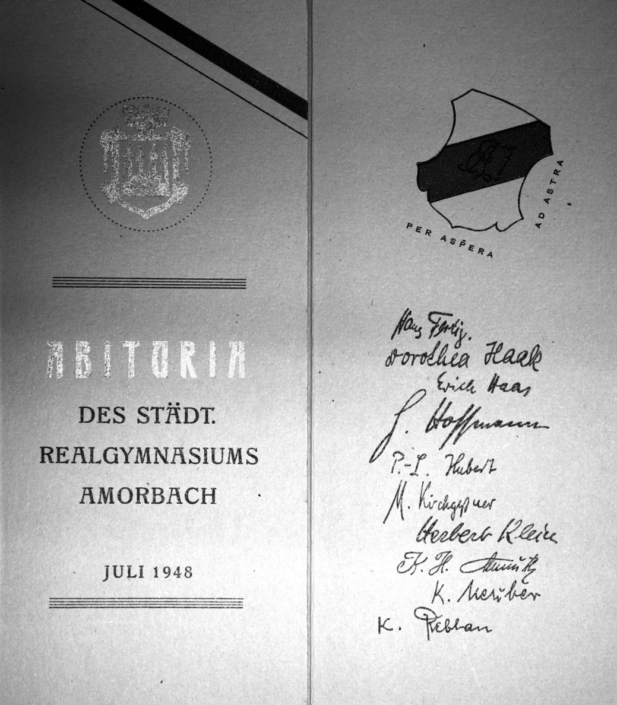 ABITORIA
DES STÄDT.
REALGYMNASIUMS
AMORBACH
JULI 1948
PER ASPERA
AD ASTRA
Hans Fertig.
Dorothea Haak
Erich Haas
Hoffmann
P.-L. Hubert
M. Kirchgeßner
Herbert Klein
K. H.
K. Neuber
K. Rebhan